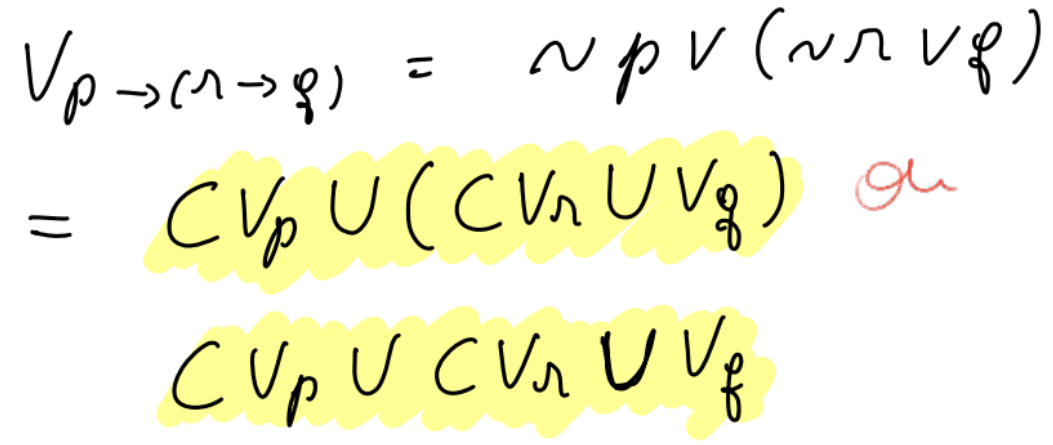 V_{p → (r → q)} = ~ p ∨ (~ r ∨ q)
= C V_p ∪ (C V_r ∪ V_q) ou
C V_p ∪ C V_r ∪ V_q